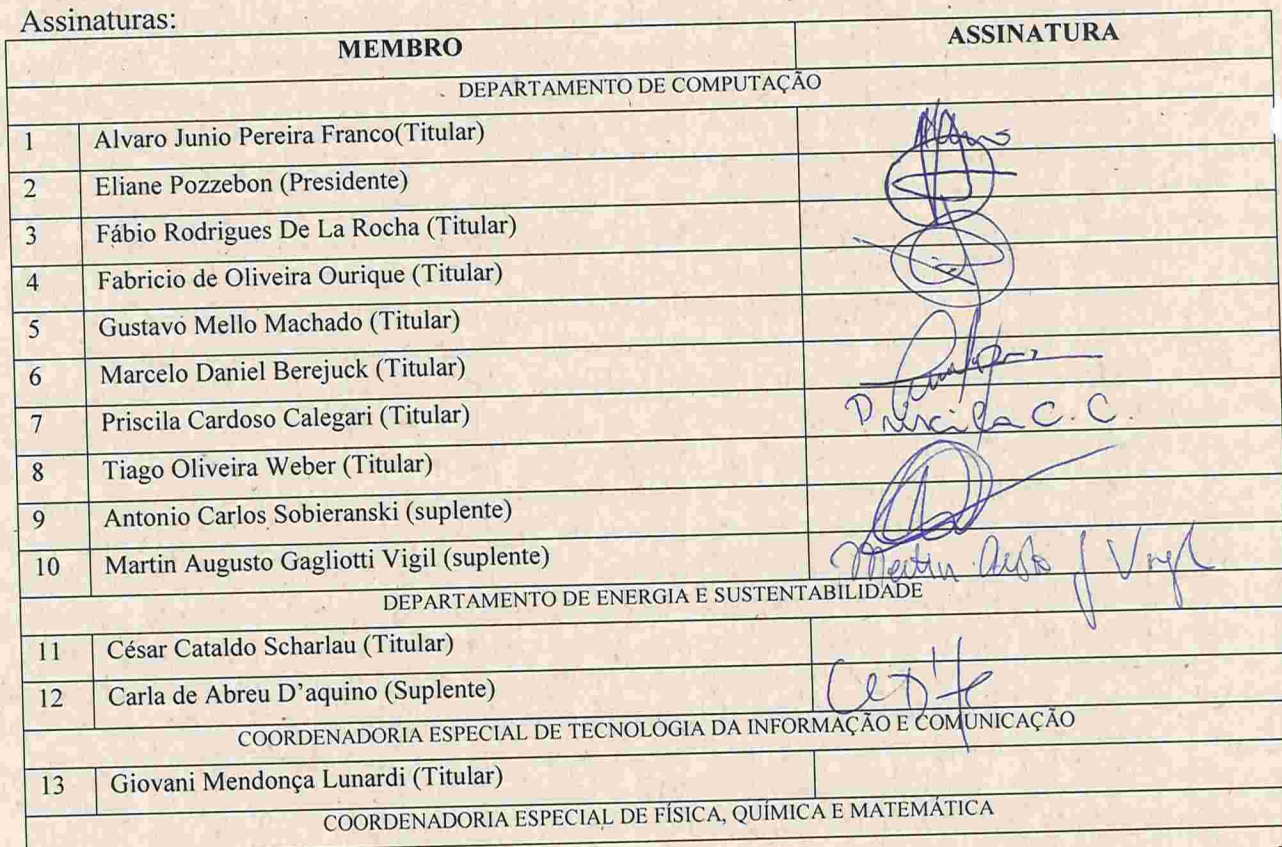 Assinaturas:
MEMBRO ASSINATURA
DEPARTAMENTO DE COMPUTAÇÃO
1 Alvaro Junio Pereira Franco(Titular)
2 Eliane Pozzebon (Presidente)
3 Fábio Rodrigues De La Rocha (Titular)
4 Fabricio de Oliveira Ourique (Titular)
5 Gustavo Mello Machado (Titular)
6 Marcelo Daniel Berejuck (Titular)
7 Priscila Cardoso Calegari (Titular) Priscila C. C.
8 Tiago Oliveira Weber (Titular)
9 Antonio Carlos Sobieranski (suplente)
10 Martin Augusto Gagliotti Vigil (suplente) Martin Vigil
DEPARTAMENTO DE ENERGIA E SUSTENTABILIDADE
11 César Cataldo Scharlau (Titular)
12 Carla de Abreu D'aquino (Suplente)
COORDENADORIA ESPECIAL DE TECNOLOGIA DA INFORMAÇÃO E COMUNICAÇÃO
13 Giovani Mendonça Lunardi (Titular)
COORDENADORIA ESPECIAL DE FÍSICA, QUÍMICA E MATEMÁTICA